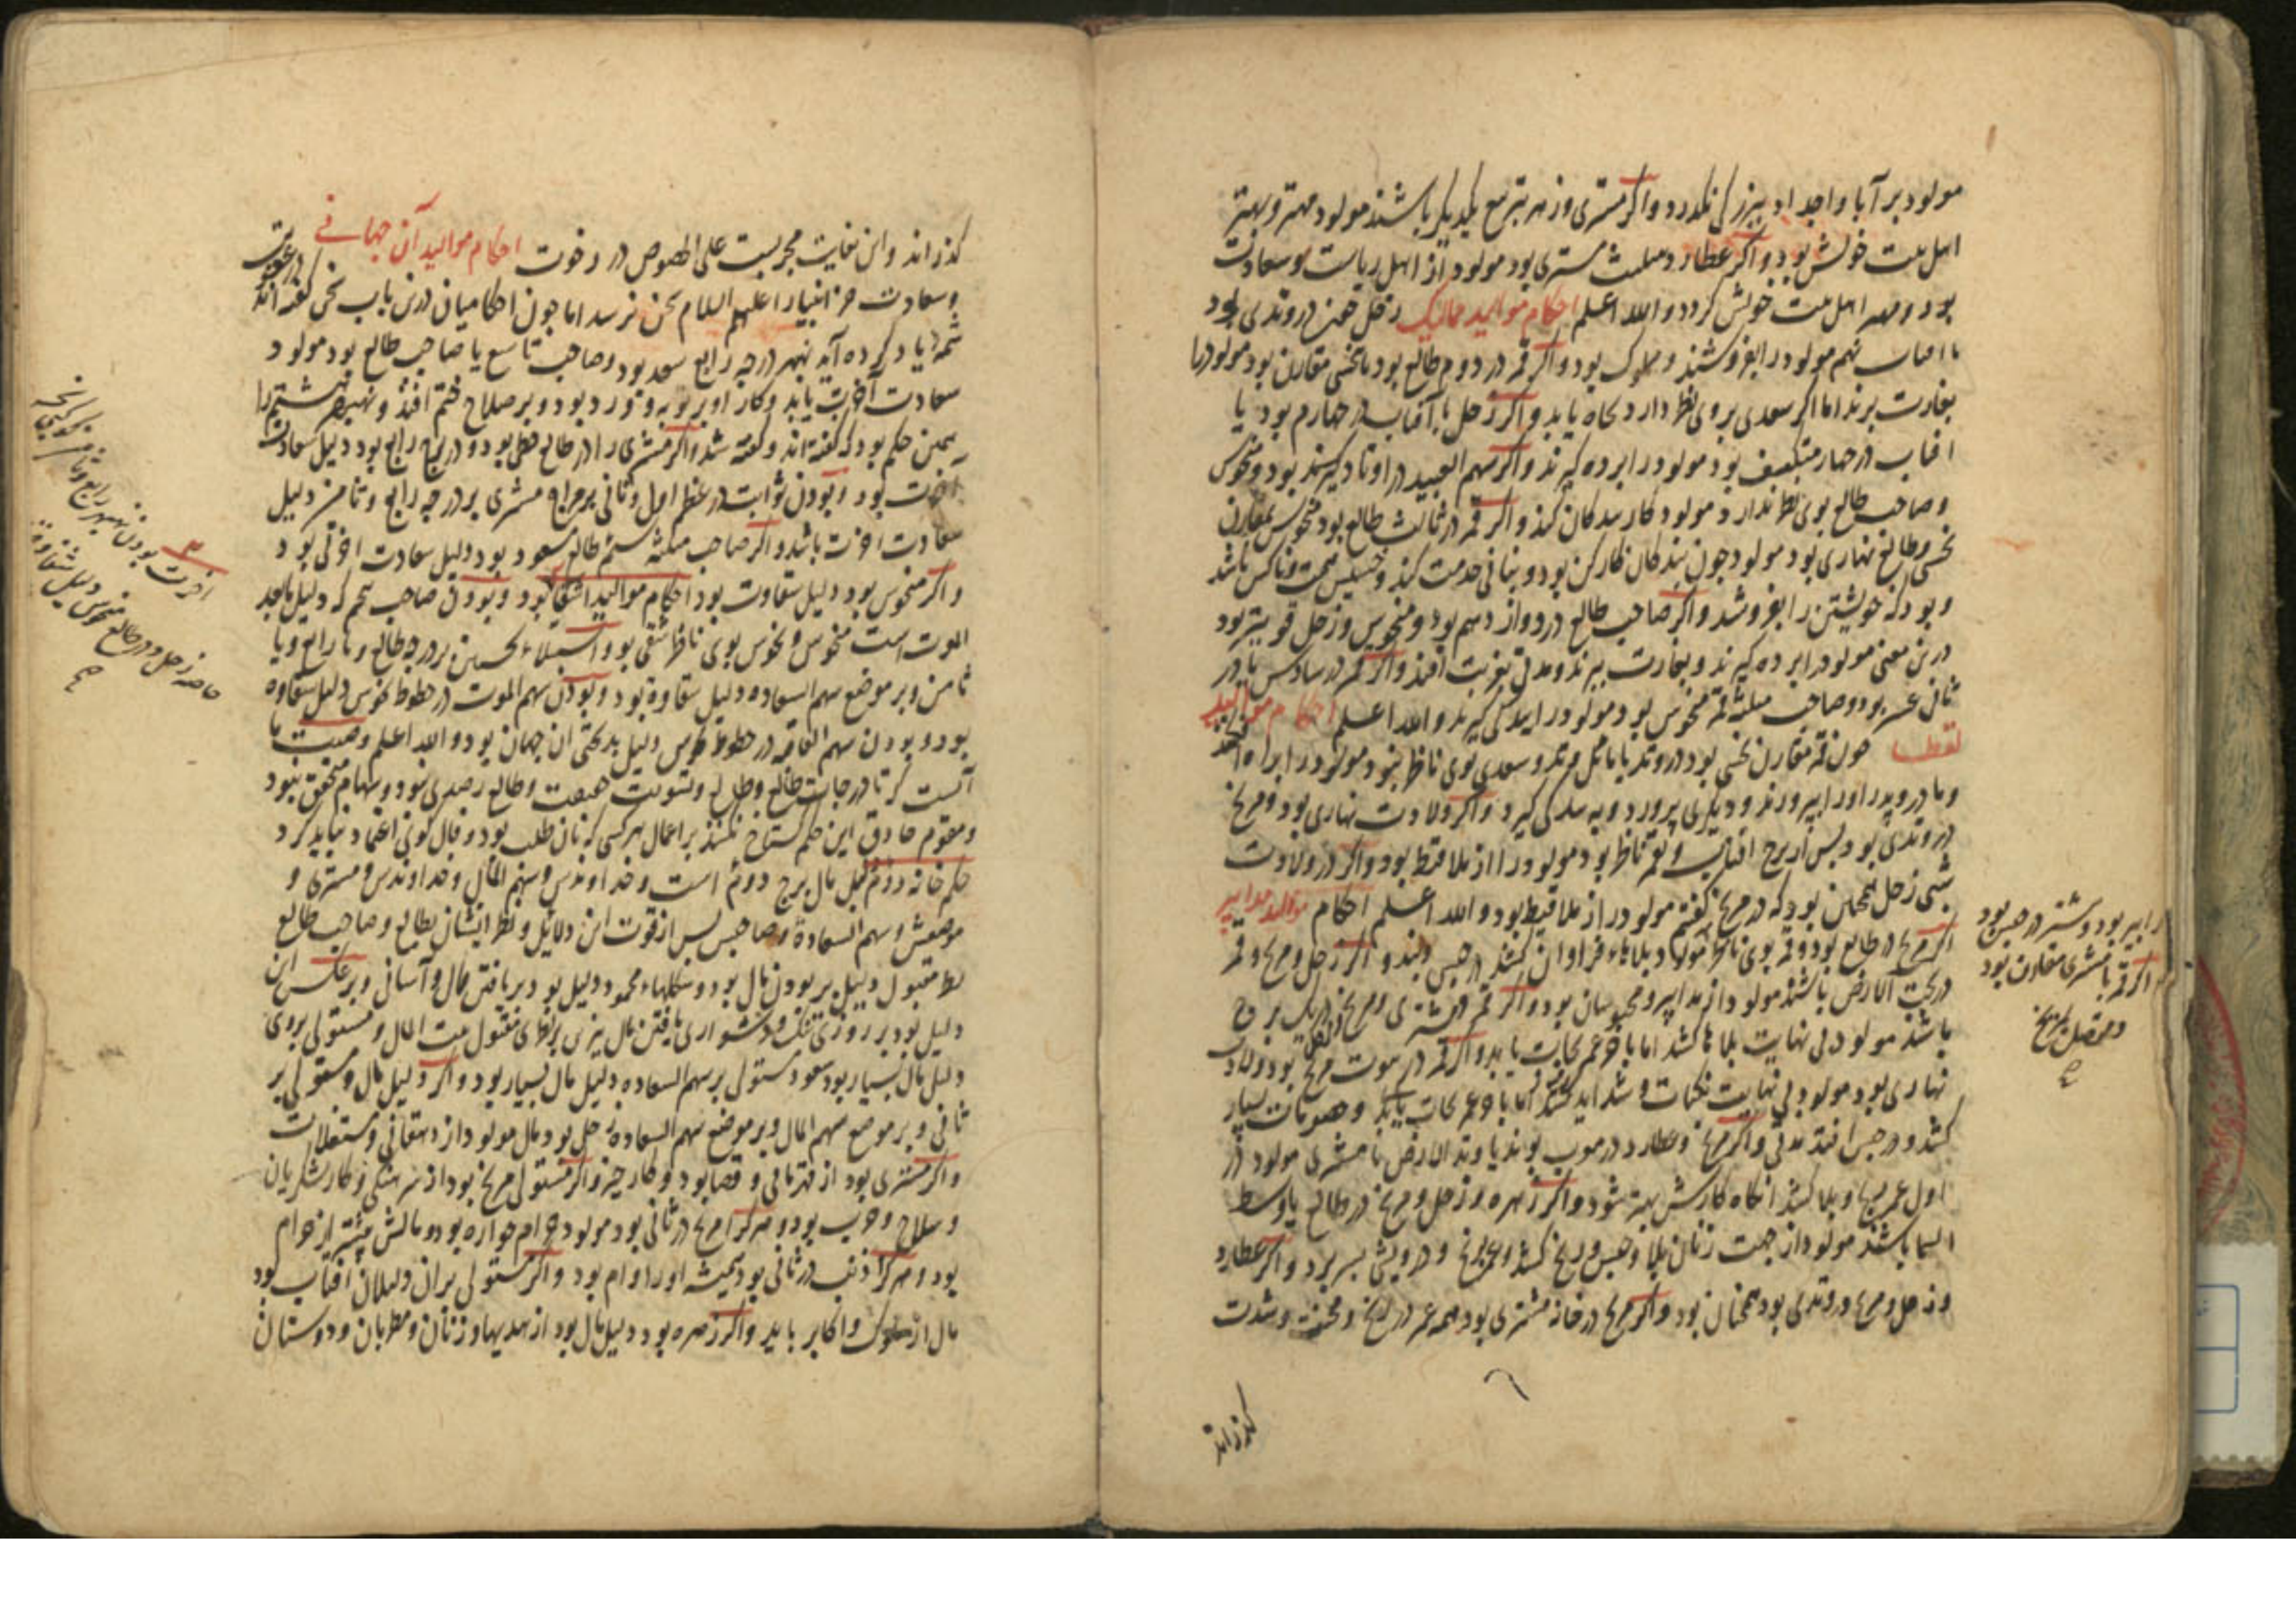 مولود بر آبا و اجداد ببزرکی نکذرد و اکر مشتری و زهره بتربیع یکدیکر باشند مولود مهتر و بهتر
اهل بیت خویش بود و اکر عطارد مثلث مشتری بود مولود از اهل ریاست و سعادت
بود و مهتر اهل بیت خویش کردد والله اعلم احکام موالید ممالیک زحل در وتدی بود
مولود را بفروشند و مملوک بود و اکر قمر در دوم طالع بود با نحسی مقارن بود مولود را
بغارت برند اما اکر سعدی بروی نظر دارد نجاة یابد و اکر زحل با آفتاب در چهارم بود یا
افتاب در چهار منکسف بود مولود را برده کیرند و اکر سهم العبید در اوتاد بود و منحوس
و صاحب طالع بوی نظر ندارد مولود کار بندکان کند و اکر قمر در ثالث طالع بود منحوس بمقارن
نحسی و طالع نهاری بود مولود چون بندکان کارکن بود و خدمت کند و خسیس همت و ناکس باشد
و بود که خویشتن را بفروشد و اکر صاحب طالع در دوازدهم بود و منحوس و زحل قوی‌تر بود
درین معنی مولود را برده کیرند و بغارت ببرند و مدتی بغربت افتد و اکر قمر در سادس یا در
ثانی عشر بود و صاحب مثلثه قمر منحوس بود مولود را کیرند والله اعلم احکام موالید
لقطا چون قمر مقارن نحسی بود در وتد یا مایل وتد و سعدی بوی ناظر نبود مولود را
و مادر و پدر او را نپرورند و دیکری پرورد و اکر ولادت نهاری بود و مریخ
در وتدی بود پس از برج افتاب و بقمر ناظر بود مولود را از ملاقیط بود و اکر در ولادت
شبی زحل همچنین بود که در مریخ کفتیم مولود از ملاقیط بود والله اعلم احکام موالید مدابیر
اکر مریخ در طالع بود و قمر بوی ناظر مولود بلاهاء فراوان کشد در حبس و بند و اکر زحل و مریخ و قمر
در تحت الارض باشند مولود از مدابیر و محبوسان بود و اکر قمر و مشتری و مریخ در یک برج
باشد مولود بی نهایت بلا کشد اما بآخر عمر نجات یابد و اکر قمر در بیوت مریخ بود و ولادت
نهاری بود مولود بی نهایت نکبات و شداید کشد اما بآخر عمر نجات یابد و عقوبات بسیار
کشد و در حبس افتد مدتی و اکر مریخ و عطارد در وتد الارض مولود در
اول عمر رنج و بلا کشد انکاه کارش بهتر شود و اکر زهره و زحل و مریخ در طالع یا وسط
السما باشند مولود از جهت زنان بلا و حبس و رنج کشد و عمر برنج و درویشی بسر برد و اکر عطارد
و زحل و مریخ در وتدی بود همچنان بود و اکر مریخ در خانه مشتری بود همه عمر در رنج و محنت و شدت
کذراند
مدابیر بود و بیشتر در حبس بود
اکر قمر با مشتری مقارن بود
و متصل بمریخ
صح
کذراند و این بغایت مجربست علی الخصوص در رخوت احکام موالید آن جهانی
و سعادت جز انبیا را علیهم السلام بکس نرسد اما چون احکامیان درین باب سخن کفته اند
شمه یاد کرده آید بهر درجه رابع سعد بود و صاحب تاسع یا صاحب طالع بود مولود
سعادت آخرت یابد و کار او بر توبه و ورد بود و بر صلاح ختم افتد و هشتم را
همین حکم بود که کفته اند و کفته شد و اکر مشتری را در طالع حظی بود و در برج رابع بود دلیل سعادت
آخرت بود و بودن ثوابت در عظم اول و ثانی بر مزاج مشتری بر درجه رابع و ثامن دلیل
سعادت اخرت باشد و اکر صاحب مثلثه سیم طالع مسعود بود دلیل سعادت اخرتی بود
و اکر منحوس بود دلیل شقاوت بود احکام موالید اشقیا بود و بودن صاحب سهم که دلیل مابعد
الموت است منحوس و نحوس بوی ناظر شقی بود و استیلاء نحسین بر درجه طالع و یا رابع و یا
ثامن و بر موضع سهم السعاده دلیل شقاوة بود و بودن سهم الموت در حظوظ نحوس دلیل شقاوه
بود و بودن سهم العاقبه در حظوظ نحوس دلیل بدبختی ان جهان بود والله اعلم وصیت ما
آنست که تا درجات طالع و تسویت بیوت و طالع رصدی نبود و سهام محقق نبود
و مقوم حاذق این حکم کستاخ نکند بر اعمال هرکسی که نان طلب بود و فال کوئی اعتماد نباید کرد
حکم خانه دوم دلیل مال برج دوم است و خداوندش و سهم المال و خداوندش و مشتری و
موضعش و سهم السعادة و صاحبش پس از قوت این دلایل و نظر ایشان بطالع و صاحب طالع
نظر مقبول دلیل بر بودن مال بود و شکلهاء محمود دلیل بود بر یافتن مال و آسانی و برعکس این
دلیل بود بر روزی تنک و دشواری یافتن مال بیت المال و مستولی بروی
دلیل مال بسیار بود سعود مستولی بر سهم السعاده دلیل مال بسیار بود و اکر دلیل مال و مستولی بر
ثانی و بر موضع سهم المال و بر موضع سهم السعاده زحل بود مال مولود از دهقانی و مستغلات
و اکر مشتری بود از قهرمانی و قضا بود و کار خیر و اکر مستولی مریخ بود از سرهنکی و کار لشکریان
و سلاح و حرب بود و هرکرا مریخ در ثانی بود مولود حرام خواره بود و مالش بیشتر از حرام
بود و هرکرا ذنب در ثانی بود همیشه او را وام بود و اکر مستولی بران دلیلان افتاب بود
مال از ملوک و اکابر یابد و اکر زهره بود دلیل مال بود از هدیها و زنان و مطربان و دوستان
اخرت بودن
حاضه زحل در طالع منحوس دلیل شقاوة
صح